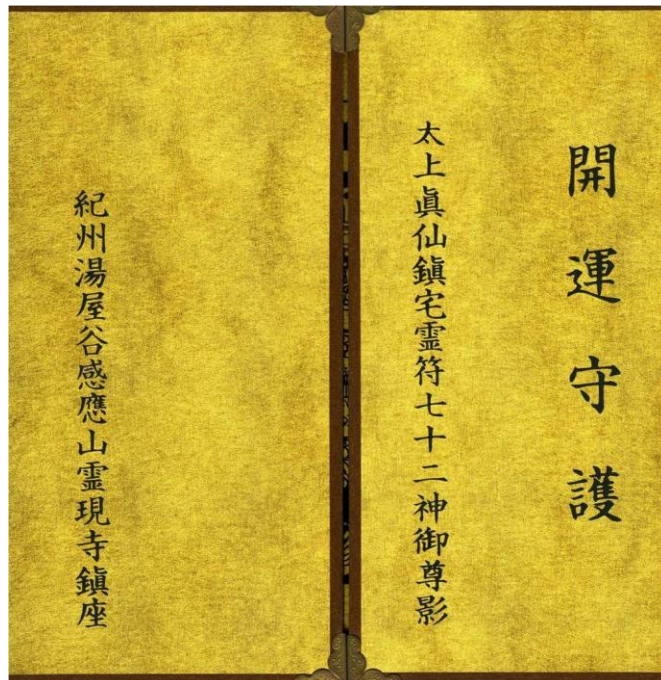 開運守護
太上眞仙鎭宅霊符七十二神御尊影
紀州湯屋谷感應山霊現寺鎭座